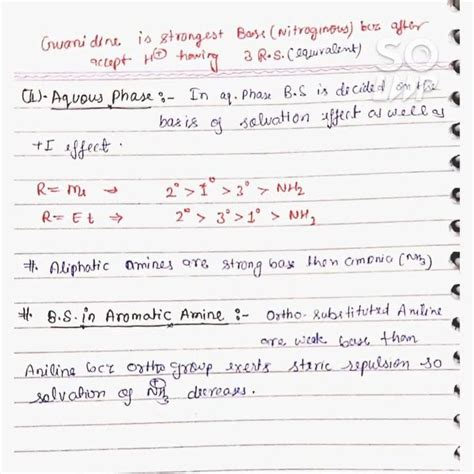 Gwanidine is strongest Base (Nitroginous) bcz after
accept H⊕ having 3 R.S. (equivalent)
(b)- Aquous Phase :- In aq. Phase B.S is decided on the
basis of solvation effect as well as
+I effect.
R= Me → 2° > 1° > 3° > NH3
R= Et ⇒ 2° > 3° > 1° > NH3
#. Aliphatic amines are strong base then amonia (NH3)
#. B.S. in Aromatic Amine :- Ortho-substituted Aniline
are weak base than
Aniline bcz ortho group exerts steric repulsion so
solvation of NH3⊕ decreases.